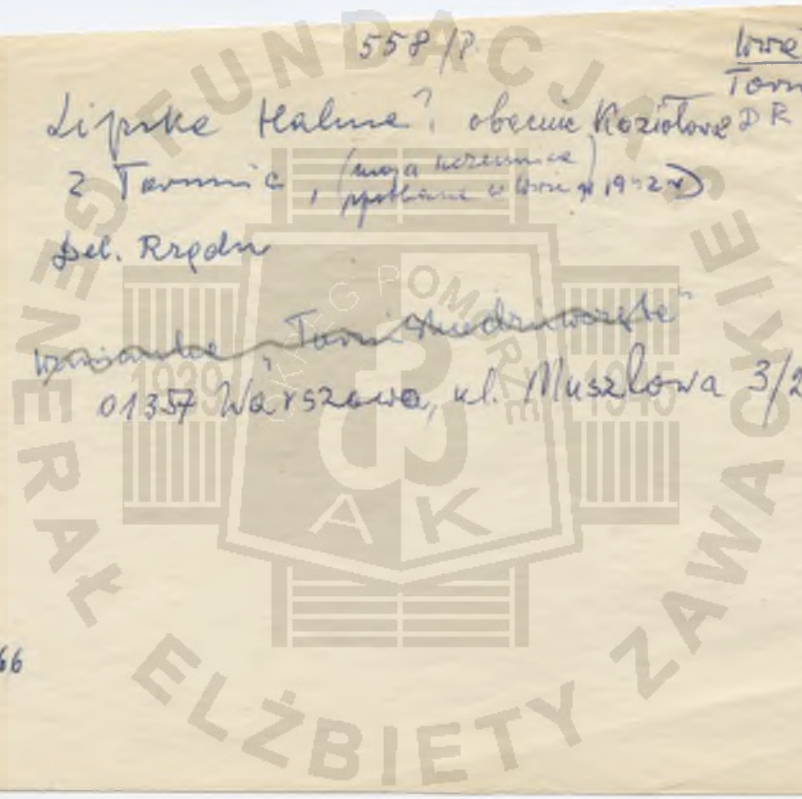 558/P.
Wwa
Toruń
DR
Lipska Halina? obecnie Koziołowa
z Torunia, (moja uczennica)
spotkana w Wwie w 1942 r)
Del. Rządu
wzmianka "Toruń
01357 Warszawa, ul. Muszlowa 3/2
66
FUNDACJA GENERAŁ ELŻBIETY ZAWACKIEJ
OKRĘG POMORZE
1939 1945
AK